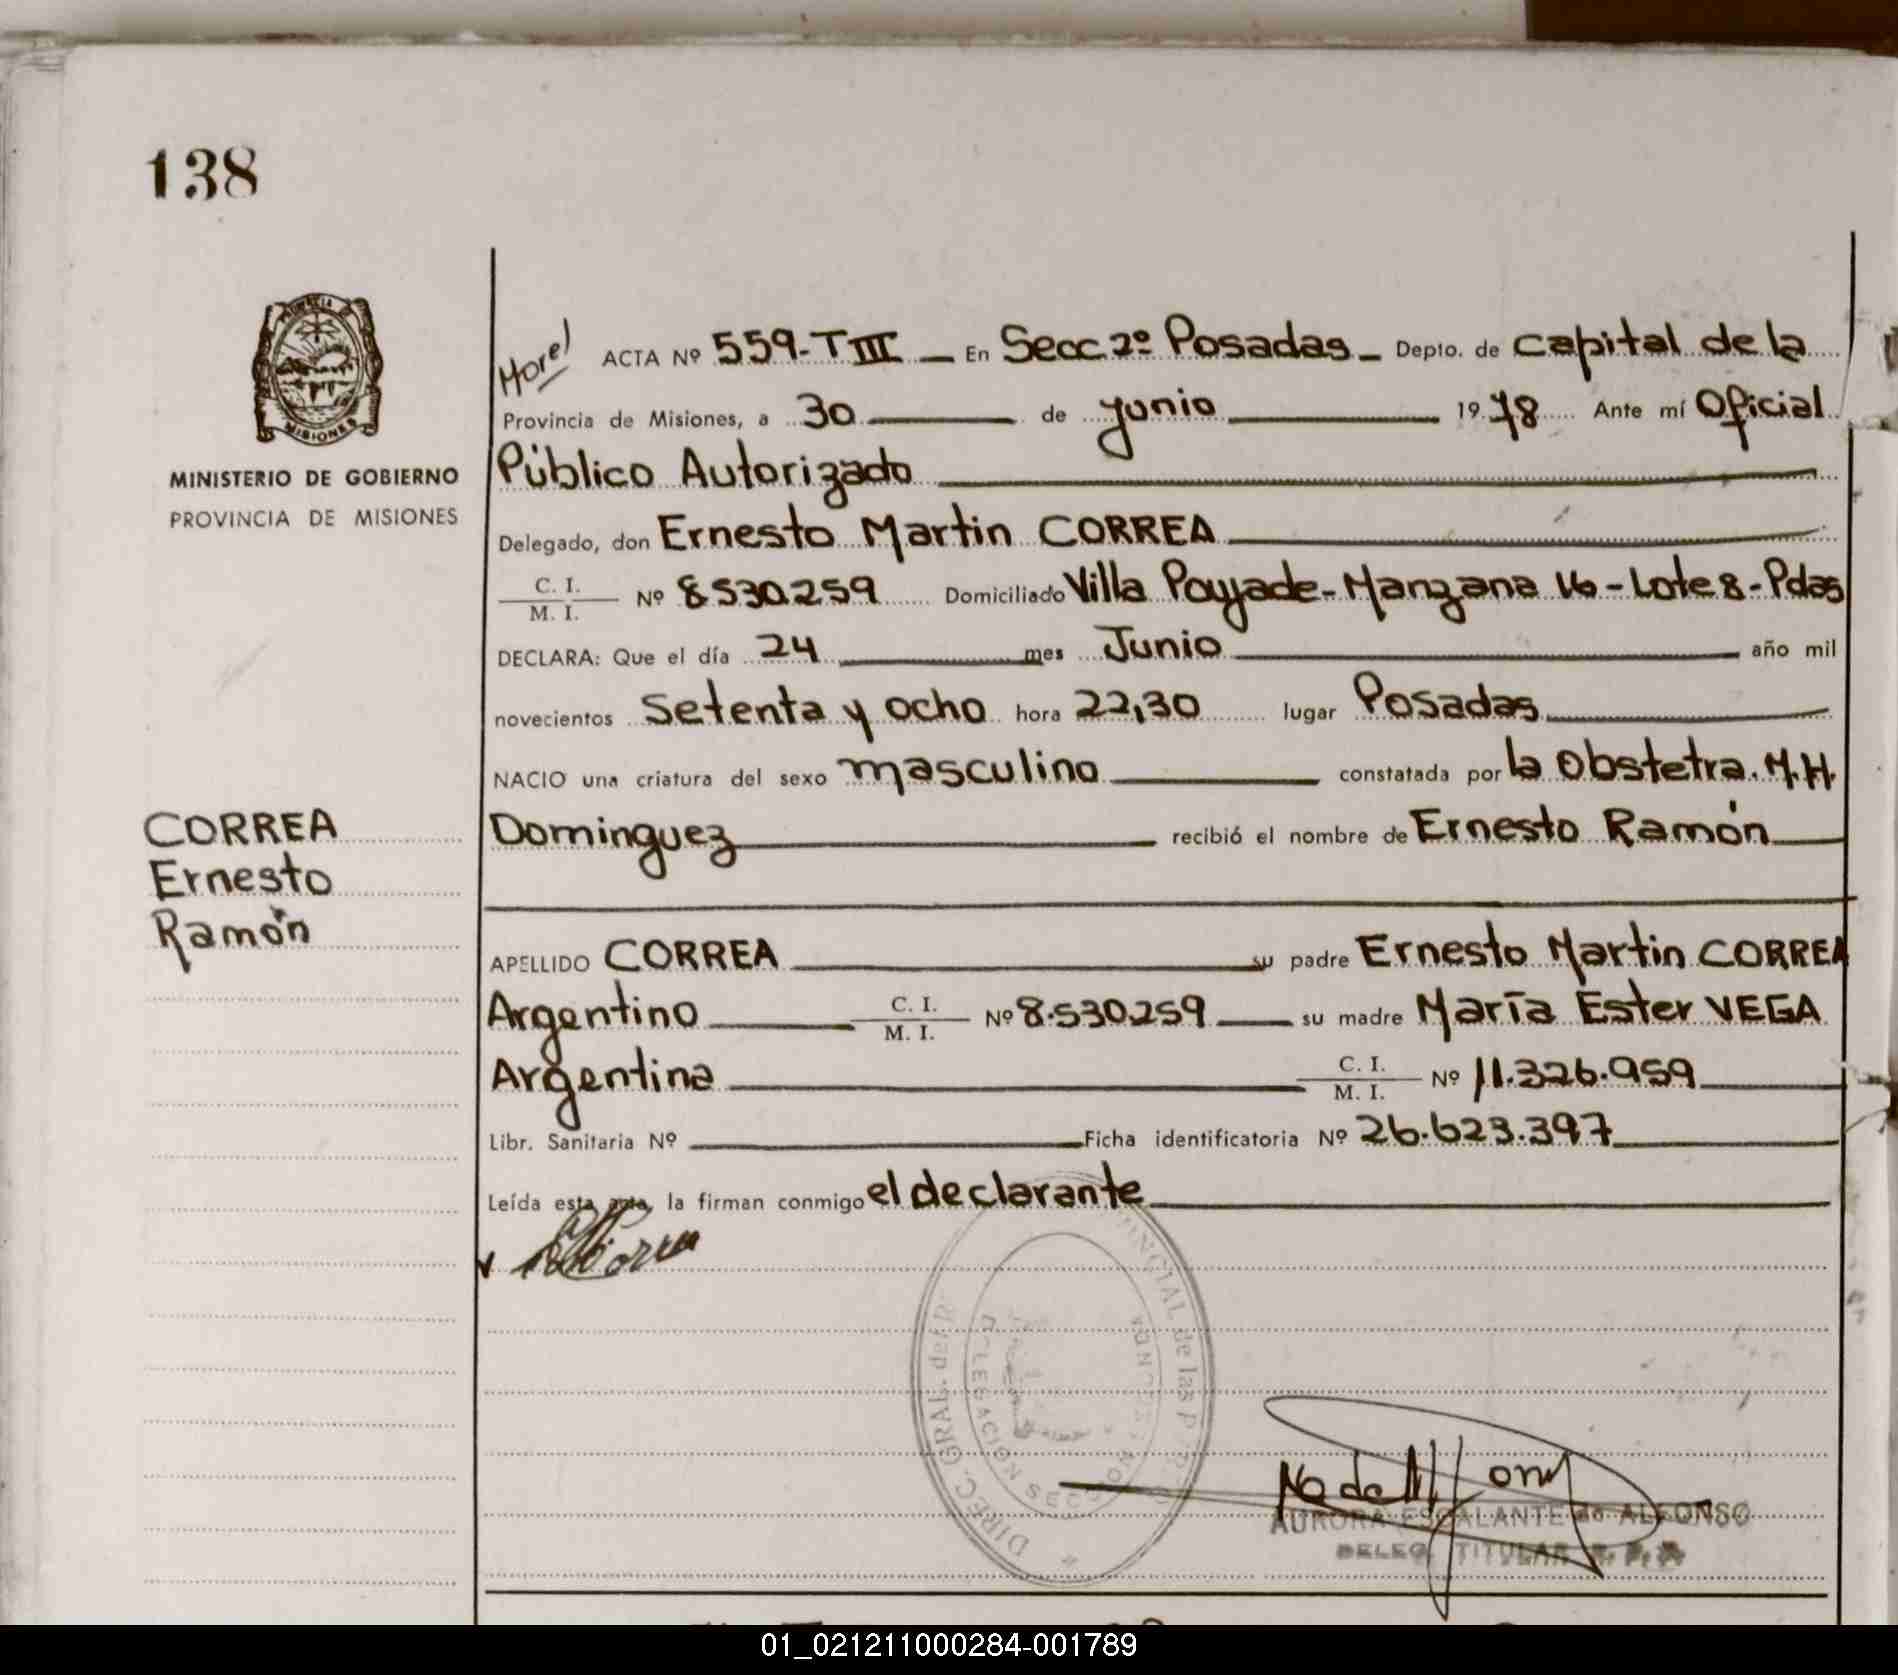 138
PROVINCIA DE
MISIONES
MINISTERIO DE GOBIERNO
PROVINCIA DE MISIONES
CORREA
Ernesto
Ramón
ACTA Nº 559-TIII En Secc 2º Posadas Depto. de capital de la
Provincia de Misiones, a 30 de junio 1978 Ante mí Oficial
Público Autorizado
Delegado, don Ernesto Martin CORREA
C. I.
M. I. Nº 8.530.259 Domiciliado Villa Poujade-Manzana 16-Lote 8-Pdas
DECLARA: Que el día 24 mes Junio año mil
novecientos setenta y ocho hora 22,30 lugar Posadas
NACIO una criatura del sexo masculino constatada por la Obstetra. M.H.
Dominguez recibió el nombre de Ernesto Ramón
APELLIDO CORREA su padre Ernesto Martin CORREA
Argentino C. I. M. I. Nº 8.530.259 su madre María Ester VEGA
Argentina C. I. M. I. Nº 11.326.959
Libr. Sanitaria Nº Ficha identificatoria Nº 26.623.397
Leída esta acta, la firman conmigo el declarante
DIREC. GRAL. del INCIAL de las P
DELEGACION SECC
AURORA ESCALANTE de ALFONSO
DELEG. TITULAR R. P. P.
01_021211000284-001789